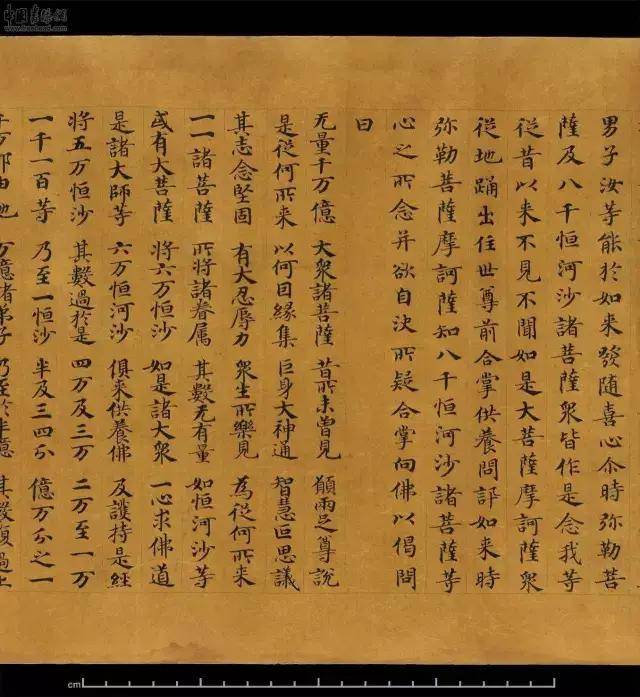 男子汝等能於如来發随喜心尒時弥勒菩
薩及八千恒河沙諸菩薩衆皆作是念我等
從昔以来不見不聞如是大菩薩摩訶薩衆
從地踊出住世尊前合掌供養問訊如来時
弥勒菩薩摩訶薩知八千恒河沙諸菩薩等
心之所念并欲自決所疑合掌向佛以偈問
曰
无量千万億 大衆諸菩薩 昔所未曾見 願兩足尊說
是從何所来 以何因緣集 巨身大神通 智慧叵思議
其志念堅固 有大忍辱力 衆生所樂見 為從何所来
一一諸菩薩 所將諸眷属 其數无有量 如恒河沙等
或有大菩薩 將六万恒沙 如是諸大衆 一心求佛道
是諸大師等 六万恒河沙 俱来供養佛 及護持是經
將五万恒沙 其數過於是 四万及三万 二万至一万
一千一百等 乃至一恒沙 半及三四分 億万分之一
千万那由他 万億諸弟子 乃至於半億 其數復過上
cm